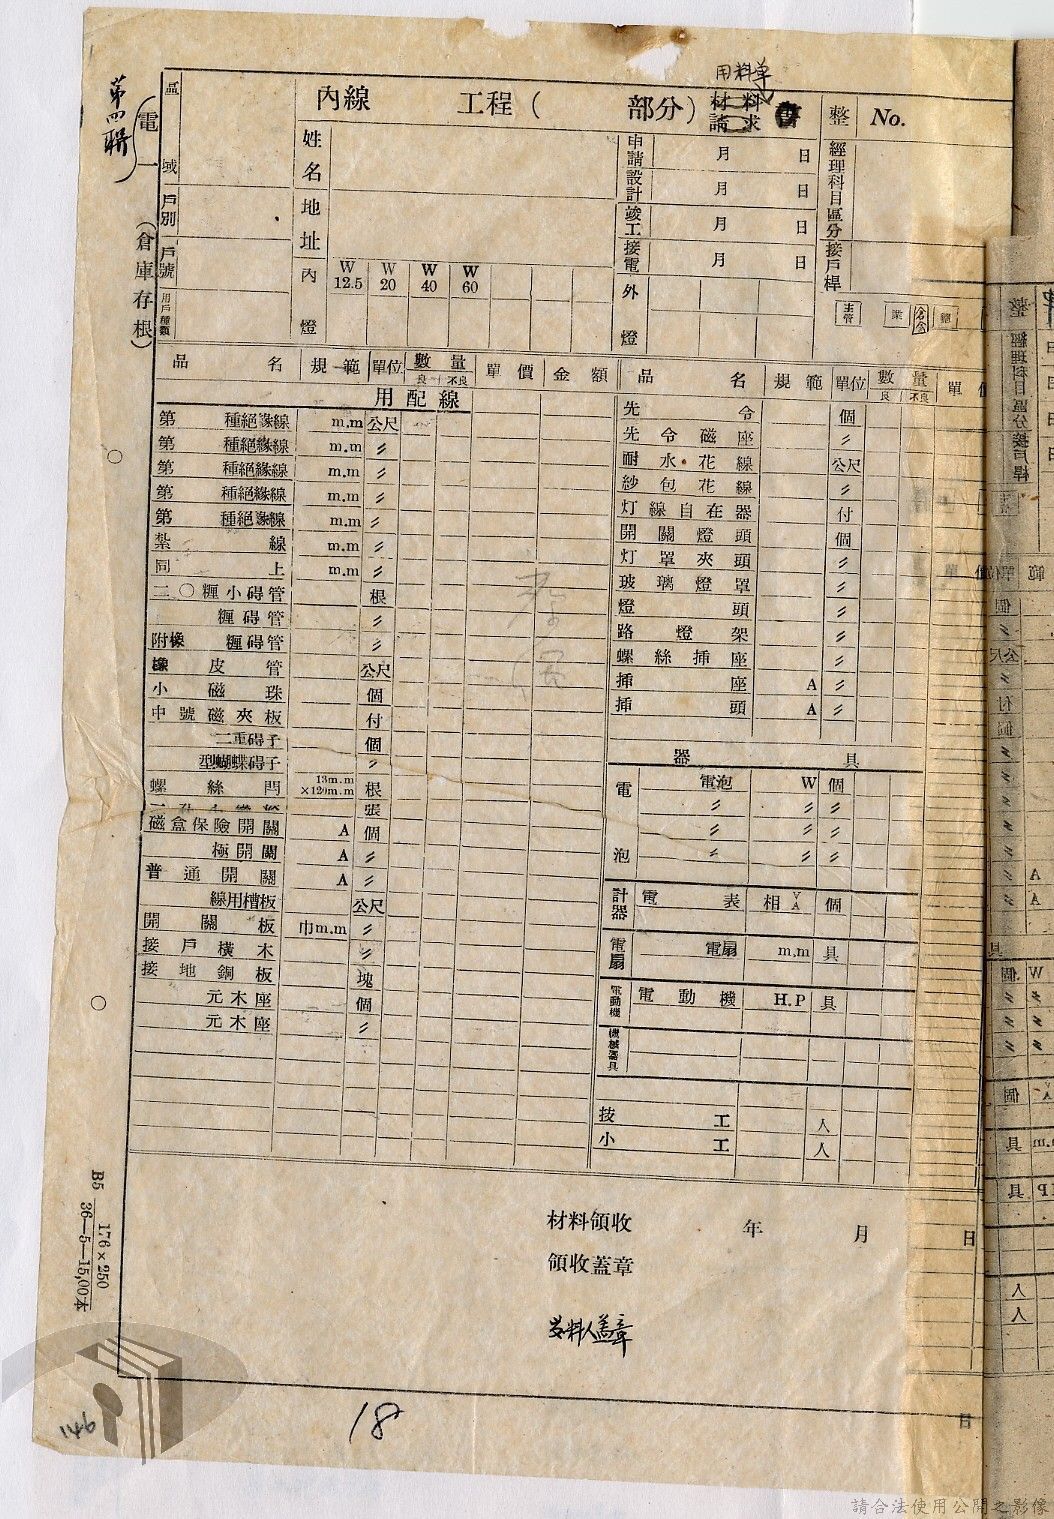 用料單
第四聯
(電一)
(倉庫存根)
內線 工程( 部分) 材料請求書
整 No.
區域
戶別
戶號
用戶種類
姓名
地址
申請 月 日
設計 月 日
竣工 月 日
接電 月 日
經理科目區分
接戶桿
內燈 W 12.5 W 20 W 40 W 60
外燈
主管 業
品名 規範 單位 數量 良 不良 單價 金額
用配線
第 種絕緣線 m.m 公尺
第 種絕緣線 m.m 〃
第 種絕緣線 m.m 〃
第 種絕緣線 m.m 〃
第 種絕緣線 m.m 〃
紮線 m.m 〃
同上 m.m 〃
二〇糎小碍管 根
糎碍管 〃
附橡 糎碍管 〃
橡皮管 公尺
小磁珠 個
中號磁夾板 付
二重碍子 個
型蝴蝶碍子 〃
螺絲閂 13m.m ×120m.m 根
張
磁盒保險開關 A 個
極開關 A 〃
普通開關 A 〃
線用槽板 公尺
開關板 巾m.m 〃
接戶橫木 〃
接地銅板 塊
元木座 個
元木座 〃
品名 規範 單位 數量 良 不良 單價
先令 個
先令磁座 〃
耐水花線 公尺
紗包花線 〃
灯線自在器 付
開關燈頭 個
灯罩夾頭 〃
玻璃燈罩 〃
燈頭 〃
路燈架 〃
螺絲挿座 〃
挿座 A 〃
挿頭 A 〃
器具
電泡 電泡 W 個
〃 〃 〃
〃 〃 〃
〃 〃 〃
計器 電表 相 V A 個
電扇 電扇 m.m 具
電動機 電動機 H.P 具
機械器具
技工 人
小工 人
材料領收 年 月 日
領收蓋章
发料人蓋章
B5 176×250
36—5—15,00本
18
146
日
請合法使用公開之影像